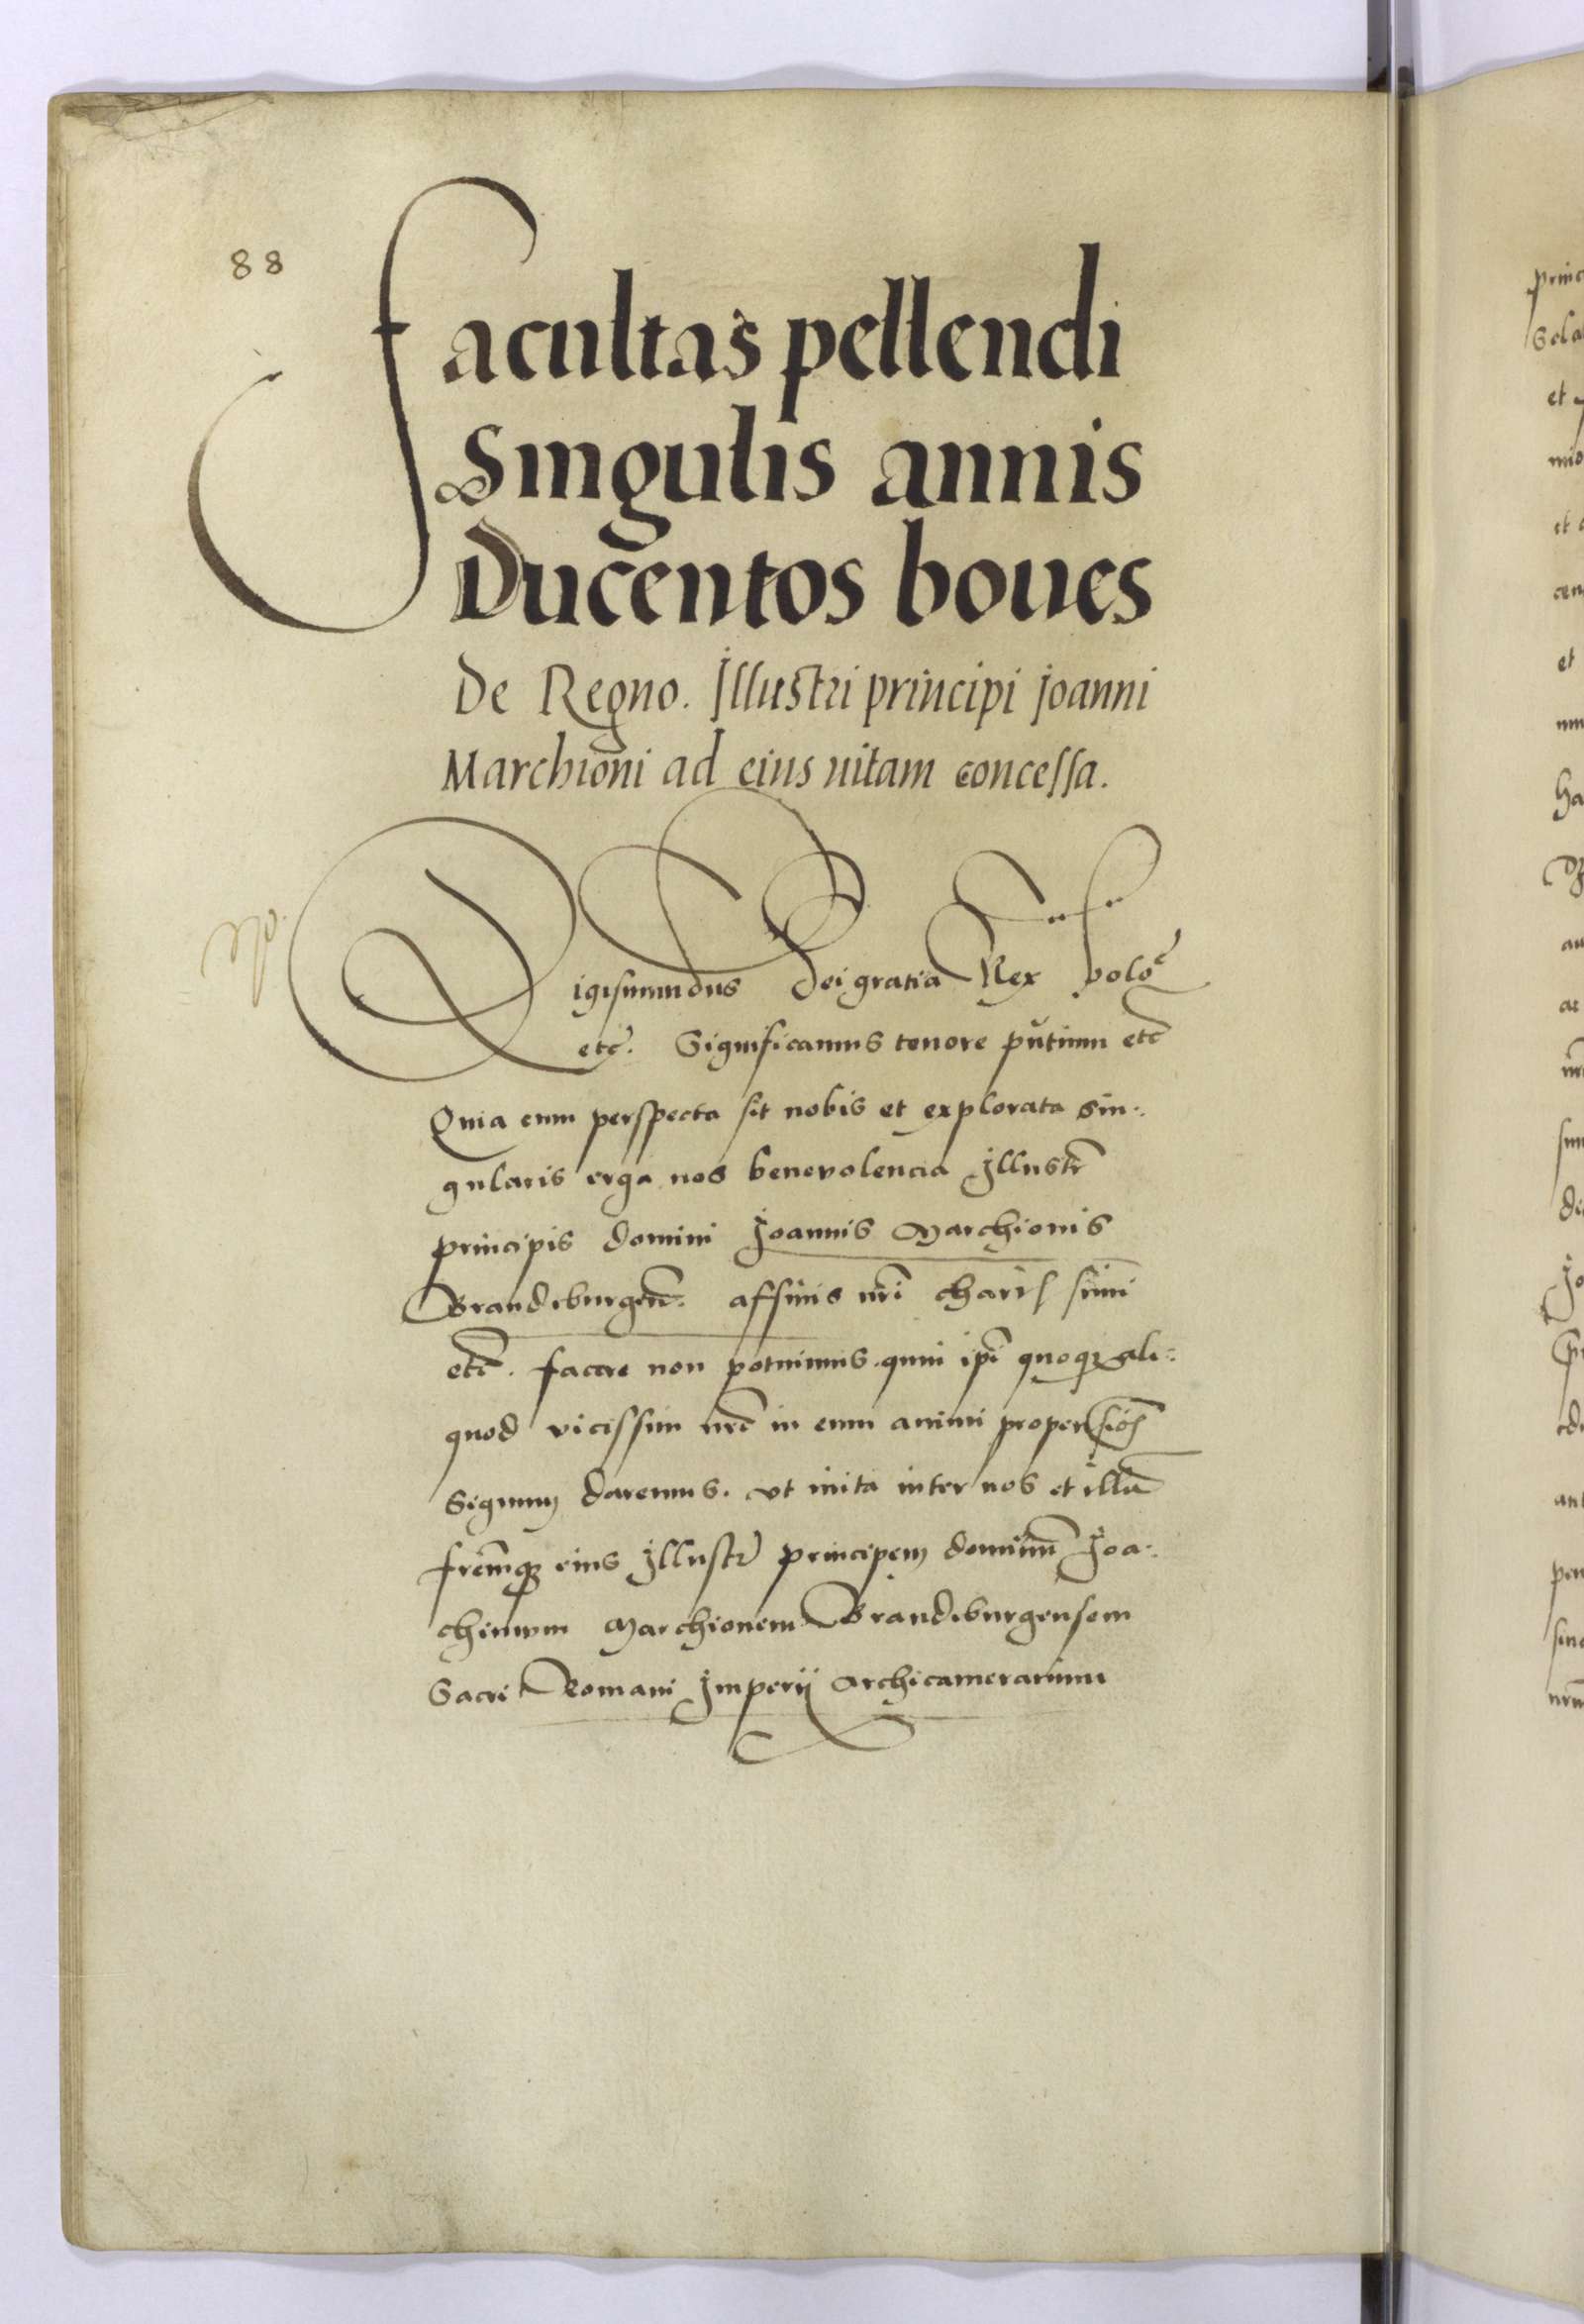 88
Facultas pellendi
Singulis annis
Ducentos boues
De Regno. Illustri principi Joanni
Marchioni ad eius uitam concessa.
Sigismundus Dei gratia Rex Polo
etc. Significamus tenore pntium etc
Quia cum perspecta sit nobis et explorata sin-
gularis erga nos benevolencia Illustr
principis domini Joannis Marchionis
Brandeburgen. affinis nri charissimi
etc. facere non potuimus quin ipi quoq ali-
quod vicissim nre in eum animi propensiois
signum daremus. vt inita inter nos et illu
fremq eius Illustr principem dominu Joa-
chimum Marchionem Brandeburgensem
Sacri Romani Imperij Archicamerarium